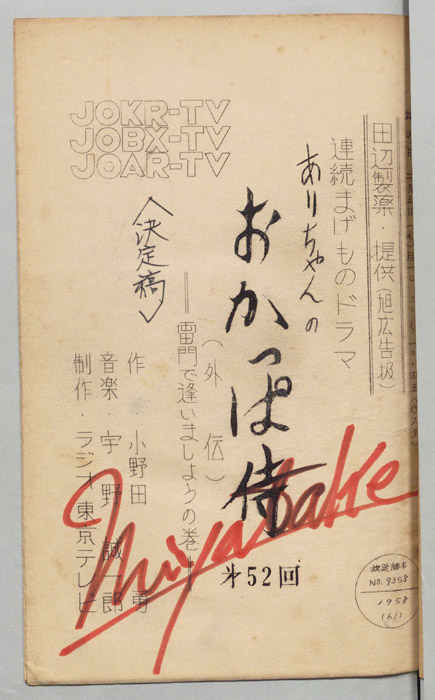 田辺製薬・提供(旭広告扱)
連続まげものドラマ
ありちゃんの
おかっぱ侍
(外伝)
──雷門で逢いましょうの巻──
作 小野田 勇
音楽・宇野誠一郎
制作・ラジオ東京テレビ
<決定稿>
JOKR-TV
JOBX-TV
JOAR-TV
Miyasake
第52回
放送脚本
NO.9358
1958
(61)